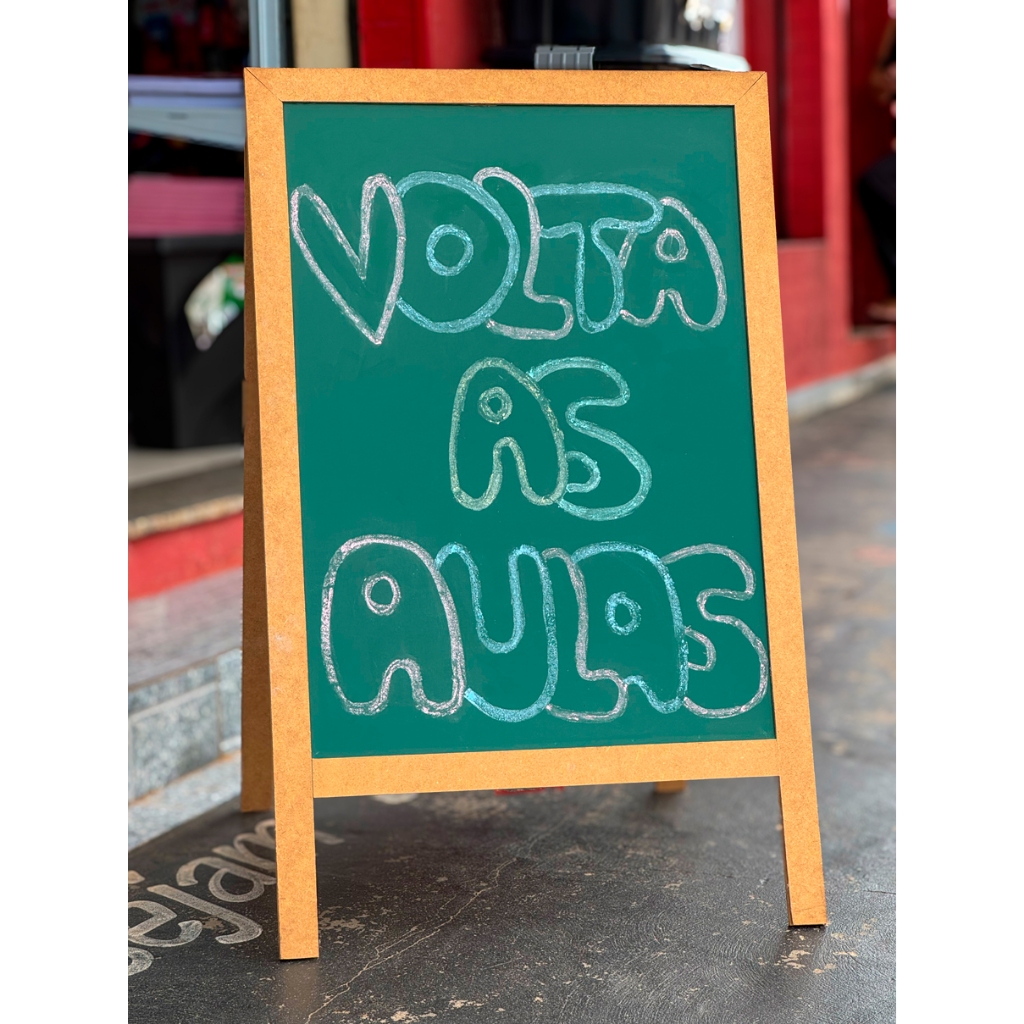 VOLTA
AS
AULAS
ejam